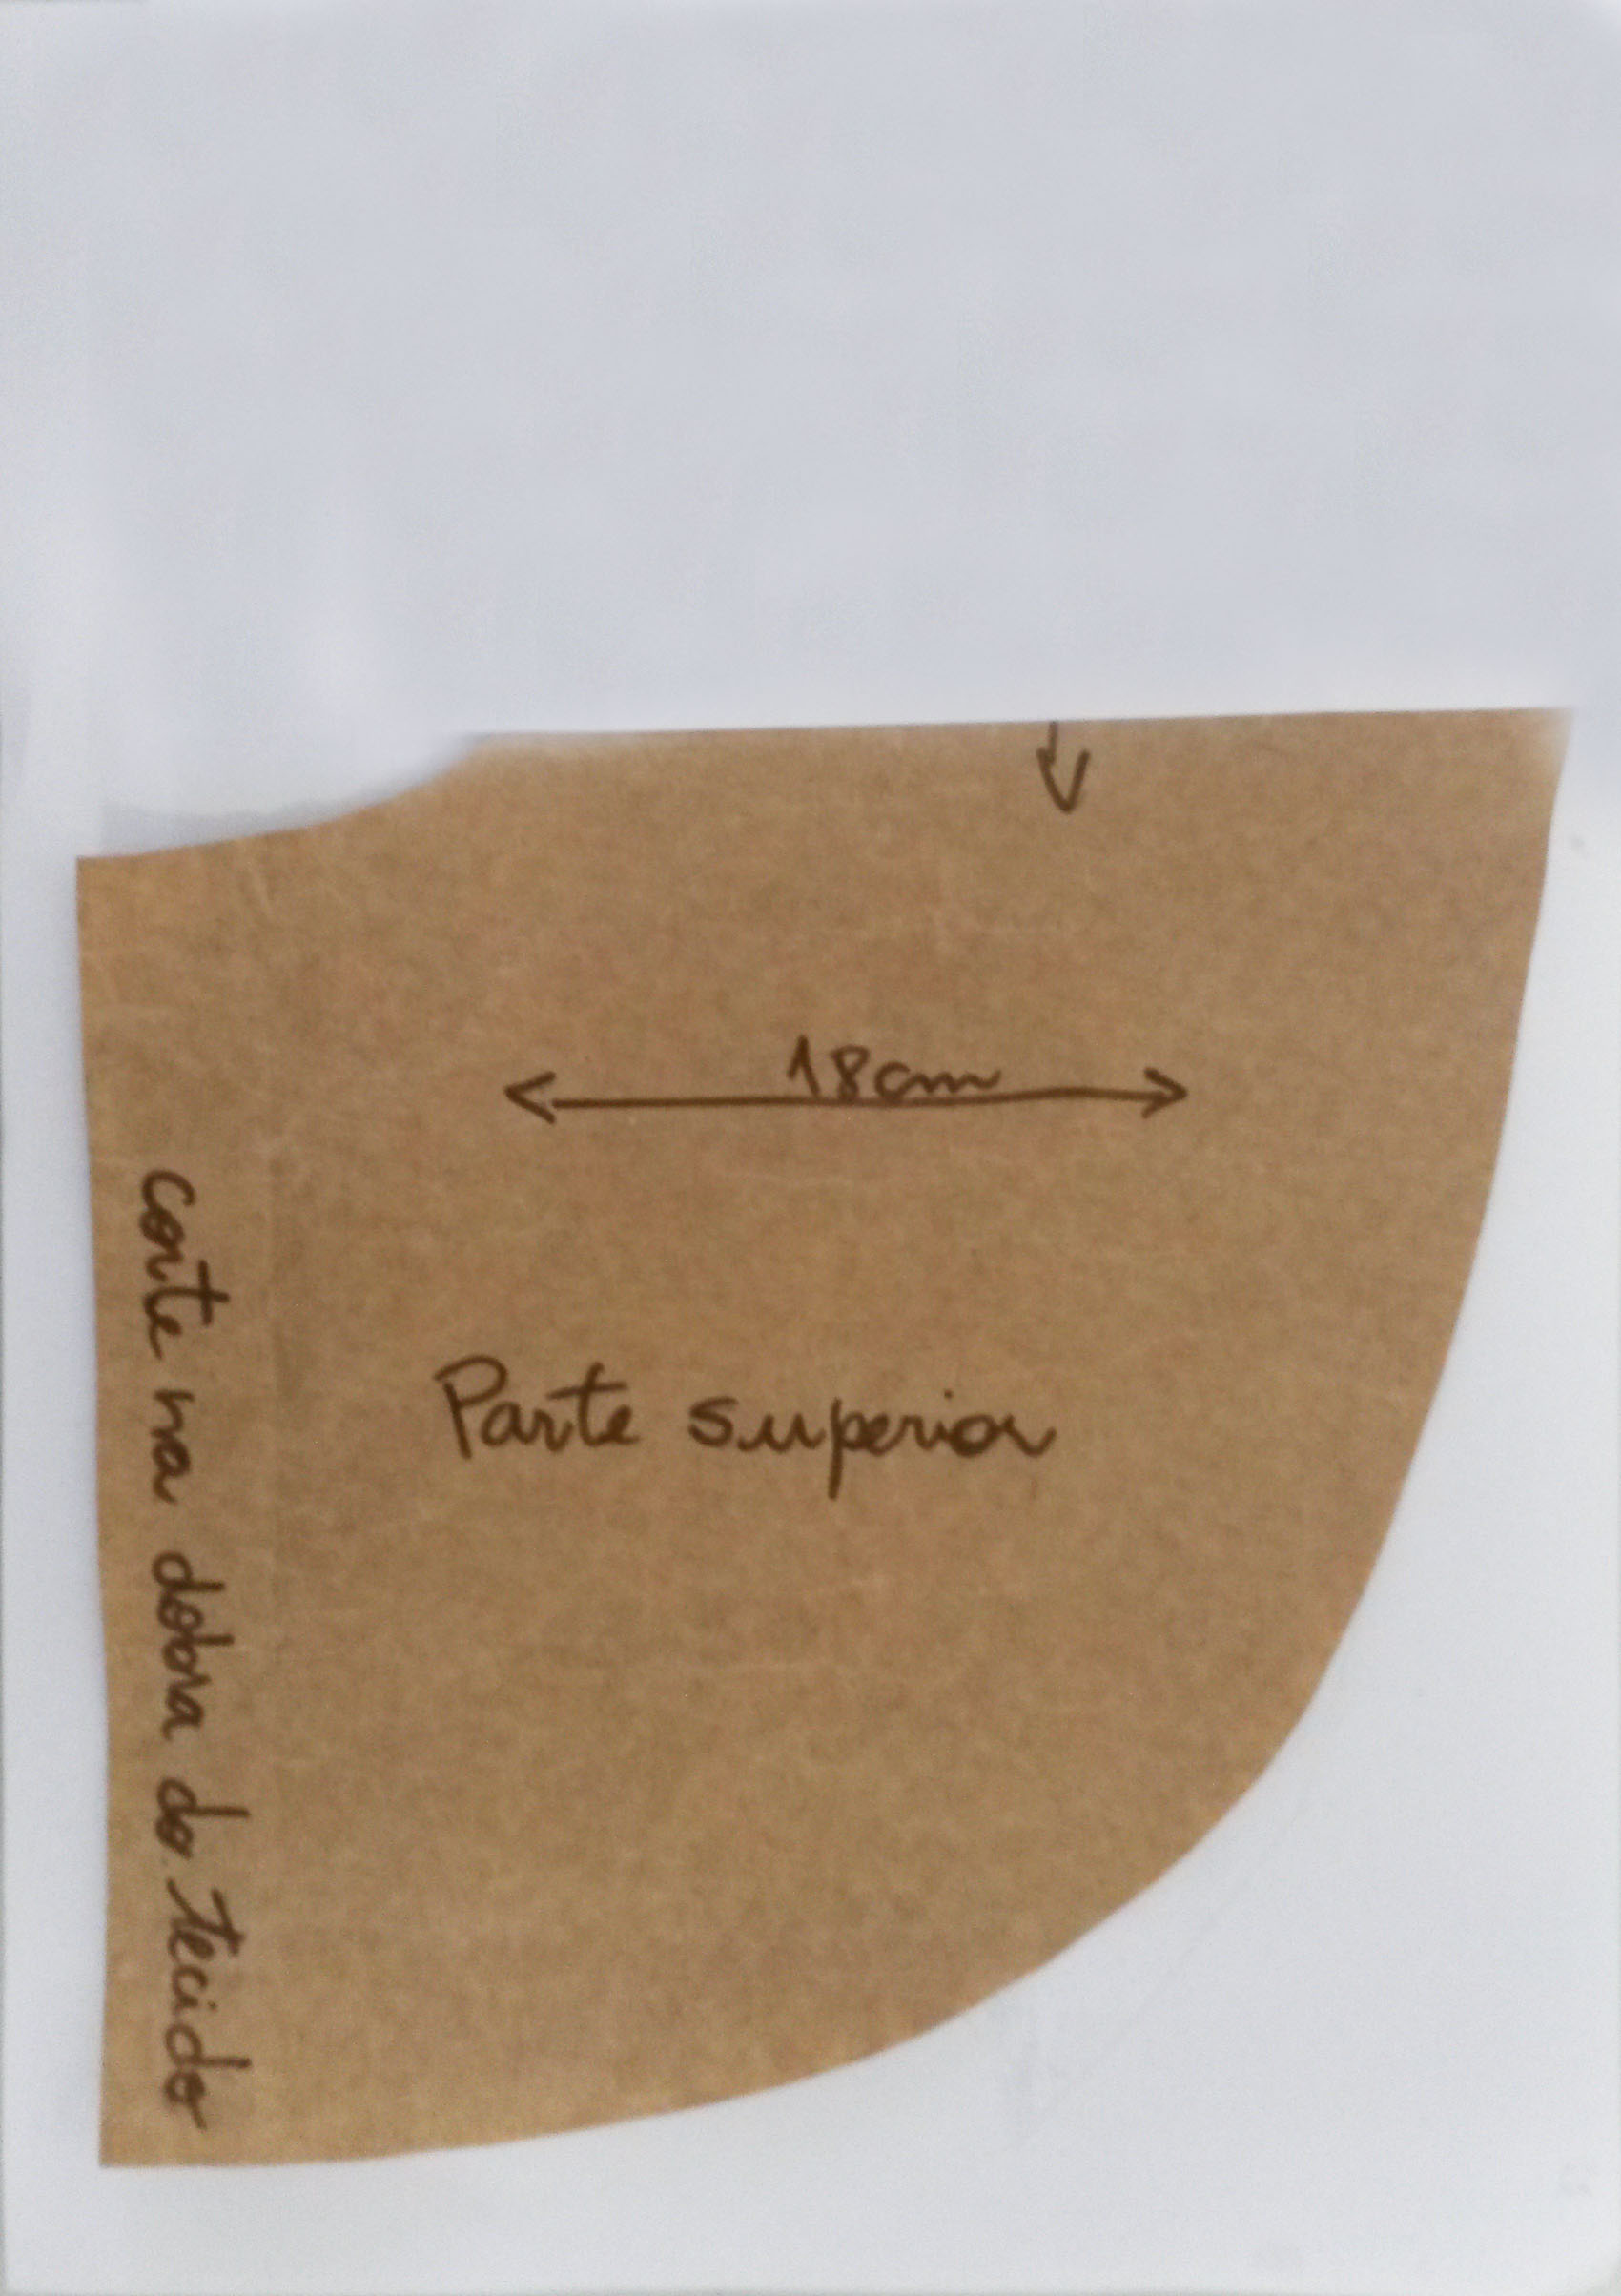 18cm
Parte superior
corte na dobra do tecido